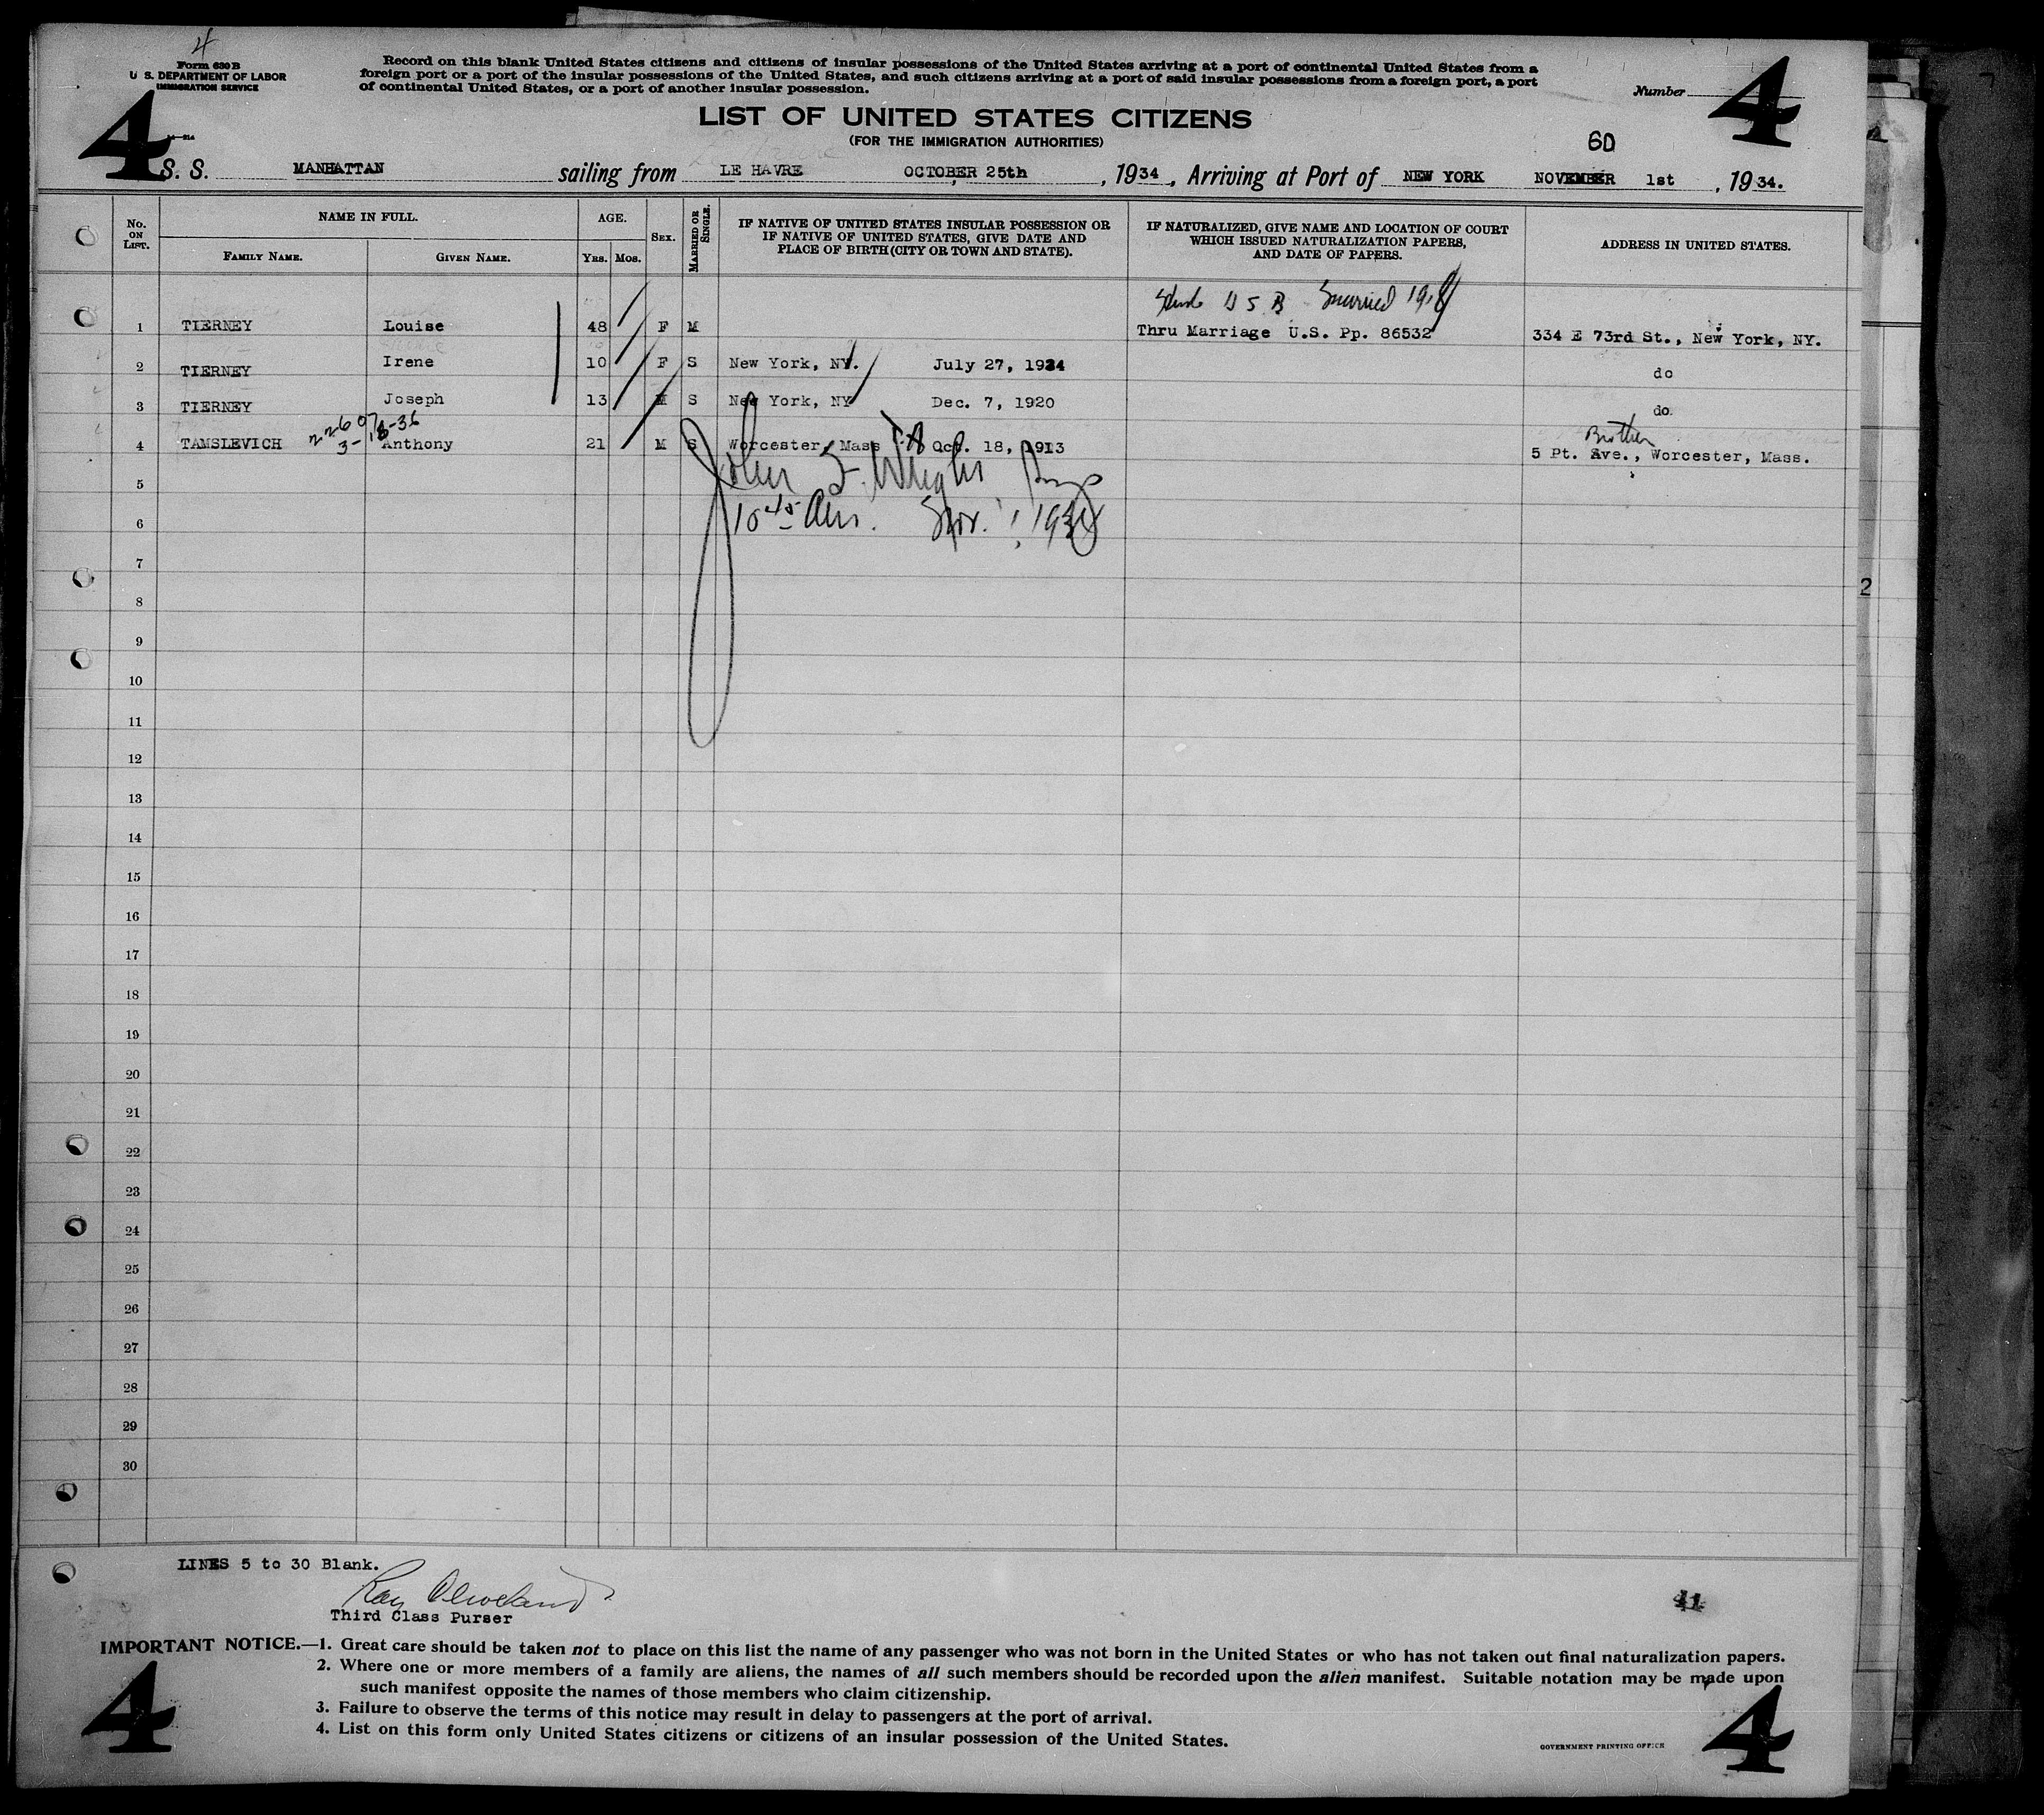 4
Form 630 B
U. S. DEPARTMENT OF LABOR
IMMIGRATION SERVICE
Record on this blank United States citizens and citizens of insular possessions of the United States arriving at a port of continental United States from a
foreign port or a port of the insular possessions of the United States, and such citizens arriving at a port of said insular possessions from a foreign port, a port
of continental United States, or a port of another insular possession.
Number
4
4
LIST OF UNITED STATES CITIZENS
(FOR THE IMMIGRATION AUTHORITIES)
60
S. S. MANHATTAN sailing from LE HAVRE OCTOBER 25th, 1934, Arriving at Port of NEW YORK NOVEMBER 1st, 1934.
No. ON LIST. NAME IN FULL. AGE. SEX. MARRIED OR SINGLE. IF NATIVE OF UNITED STATES INSULAR POSSESSION OR IF NATIVE OF UNITED STATES, GIVE DATE AND PLACE OF BIRTH (CITY OR TOWN AND STATE). IF NATURALIZED, GIVE NAME AND LOCATION OF COURT WHICH ISSUED NATURALIZATION PAPERS, AND DATE OF PAPERS. ADDRESS IN UNITED STATES.
FAMILY NAME. GIVEN NAME. YRS. MOS.
U S B married 1918
1 TIERNEY Louise 48 F M Thru Marriage U.S. Pp. 86532 334 E 73rd St., New York, NY.
2 TIERNEY Irene 10 F S New York, NY. July 27, 1924 do
3 TIERNEY Joseph 13 M S New York, NY Dec. 7, 1920 do.
3-18-36
Brother
4 TAMSLEVICH Anthony 21 M S Worcester, Mass Oct. 18, 1913 5 Pt. Ave., Worcester, Mass.
5
John Insp
6
10 45 Am. Nov. 1, 1934
7
8
2
9
10
11
12
13
14
15
16
17
18
19
20
21
22
23
24
25
26
27
28
29
30
LINES 5 to 30 Blank.
Ray Cleveland
Third Class Purser
IMPORTANT NOTICE.—1. Great care should be taken not to place on this list the name of any passenger who was not born in the United States or who has not taken out final naturalization papers.
2. Where one or more members of a family are aliens, the names of all such members should be recorded upon the alien manifest. Suitable notation may be made upon
such manifest opposite the names of those members who claim citizenship.
3. Failure to observe the terms of this notice may result in delay to passengers at the port of arrival.
4. List on this form only United States citizens or citizens of an insular possession of the United States.
GOVERNMENT PRINTING OFFICE
4
4